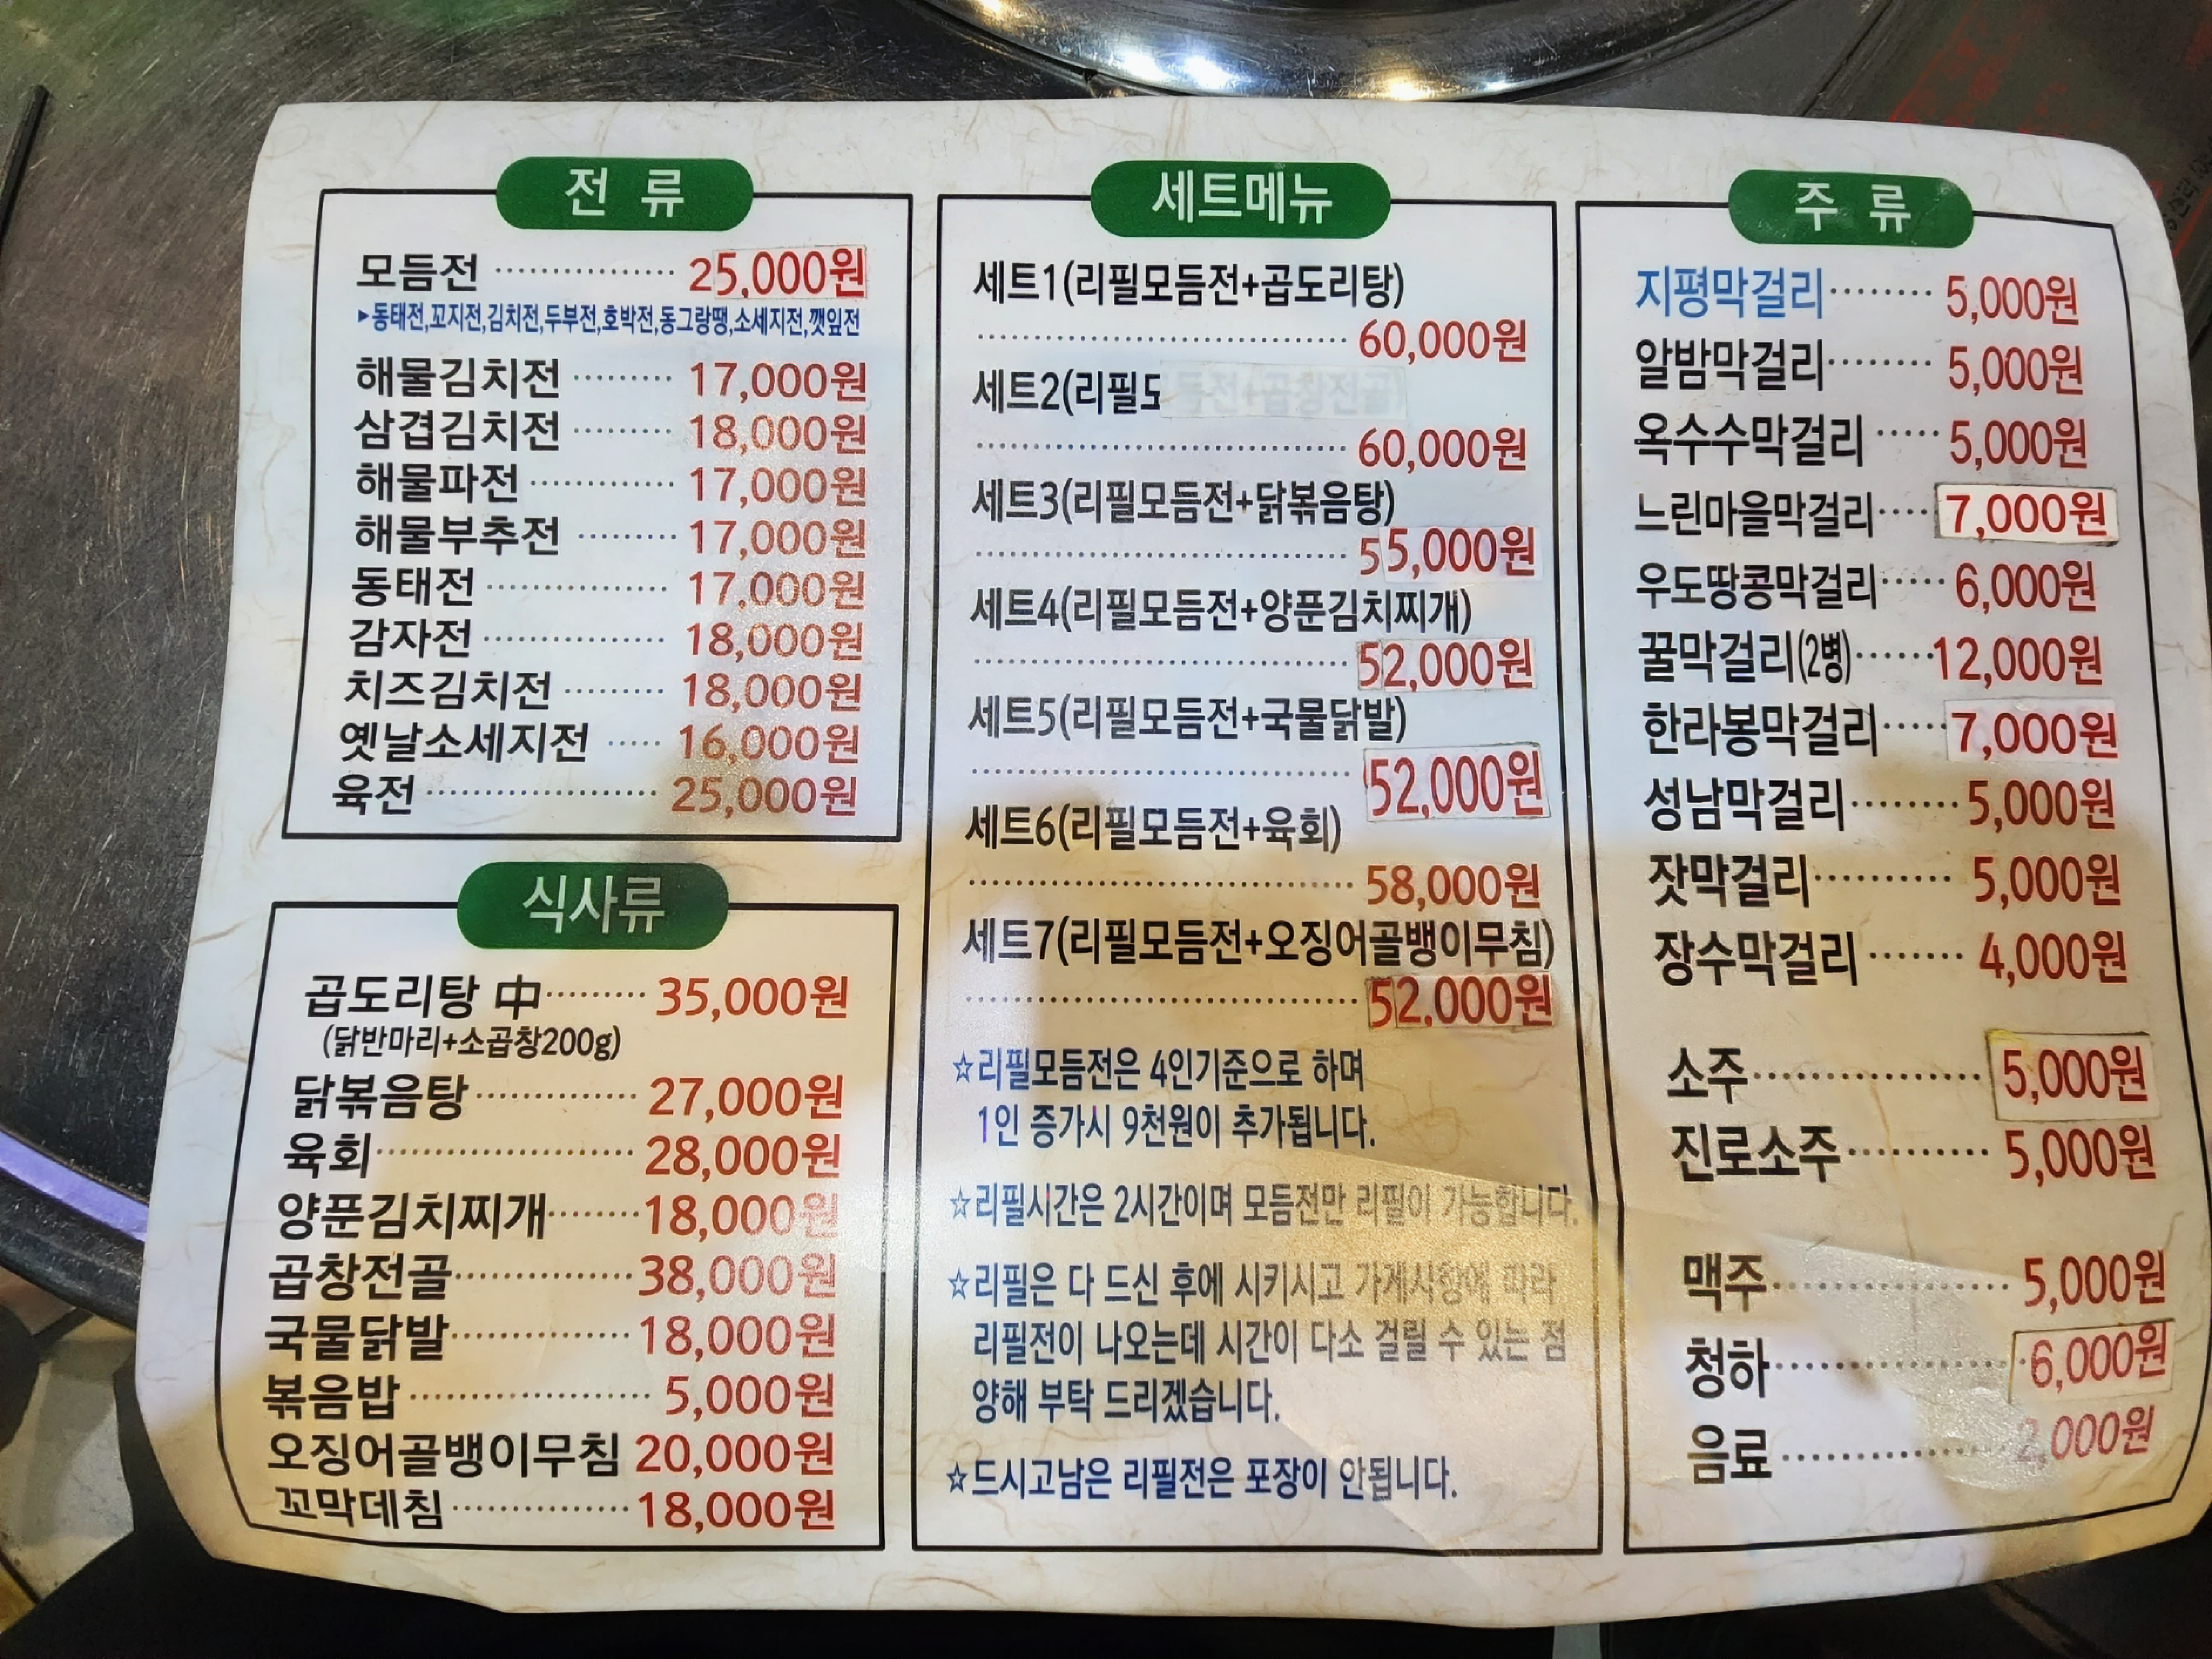 전 류
모듬전 ················ 25,000원
▶동태전,꼬지전,김치전,두부전,호박전,동그랑땡,소세지전,깻잎전
해물김치전 ········· 17,000원
삼겹김치전 ········· 18,000원
해물파전 ············· 17,000원
해물부추전 ········· 17,000원
동태전 ················· 17,000원
감자전 ················· 18,000원
치즈김치전 ········· 18,000원
옛날소세지전 ····· 16,000원
육전 ····················· 25,000원
식사류
곱도리탕 中 ········· 35,000원
(닭반마리+소곱창200g)
닭볶음탕 ·············· 27,000원
육회 ······················ 28,000원
양푼김치찌개 ········ 18,000원
곱창전골 ················ 38,000원
국물닭발 ················ 18,000원
볶음밥 ····················· 5,000원
오징어골뱅이무침 20,000원
꼬막데침 ················ 18,000원
세트메뉴
세트1(리필모듬전+곱도리탕)
································· 60,000원
세트2(리필모듬전+곱창전골)
································· 60,000원
세트3(리필모듬전+닭볶음탕)
································· 55,000원
세트4(리필모듬전+양푼김치찌개)
································· 52,000원
세트5(리필모듬전+국물닭발)
································· 52,000원
세트6(리필모듬전+육회)
································· 58,000원
세트7(리필모듬전+오징어골뱅이무침)
································· 52,000원
☆리필모듬전은 4인기준으로 하며
1인 증가시 9천원이 추가됩니다.
☆리필시간은 2시간이며 모듬전만 리필이 가능합니다.
☆리필은 다 드신 후에 시키시고 가게사항에 따라
리필전이 나오는데 시간이 다소 걸릴 수 있는 점
양해 부탁 드리겠습니다.
☆드시고남은 리필전은 포장이 안됩니다.
주 류
지평막걸리 ········ 5,000원
알밤막걸리 ········ 5,000원
옥수수막걸리 ····· 5,000원
느린마을막걸리 ···· 7,000원
우도땅콩막걸리 ····· 6,000원
꿀막걸리(2병) ······ 12,000원
한라봉막걸리 ····· 7,000원
성남막걸리 ········ 5,000원
잣막걸리 ·········· 5,000원
장수막걸리 ······· 4,000원
소주 ················· 5,000원
진로소주 ·········· 5,000원
맥주 ················· 5,000원
청하 ················· 6,000원
음료 ················· 2,000원